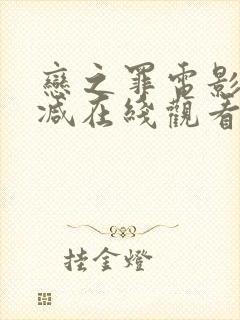 戀之罪電影
減在綫觀看
挂金燈